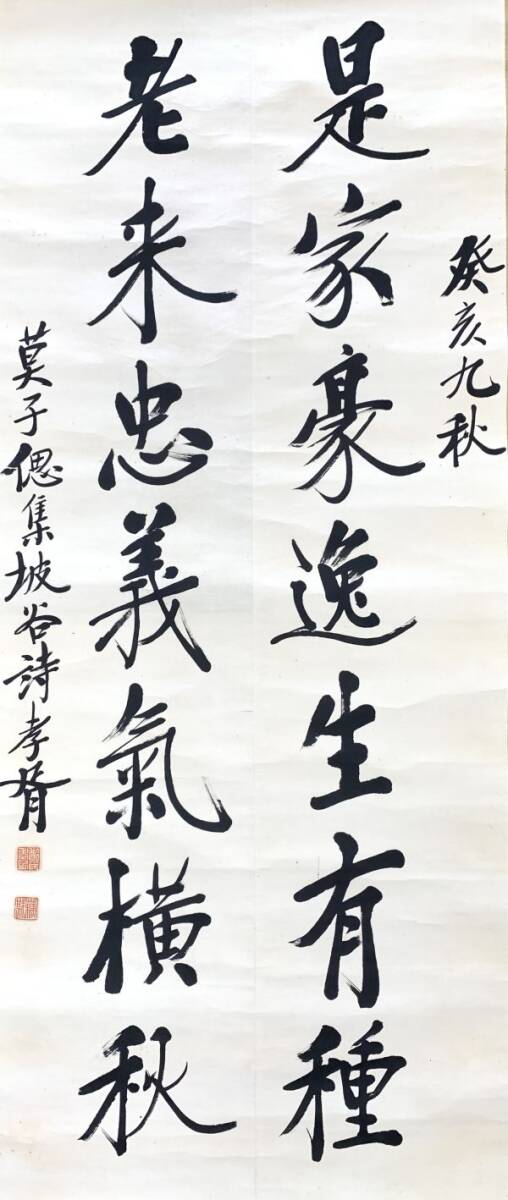 癸亥九秋
是家豪逸生有種
老来忠義氣橫秋
莫子偲集坡谷詩孝胥